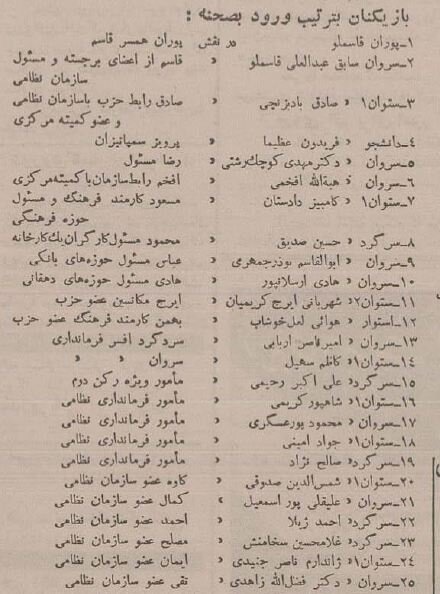 بازیکنان بترتیب ورود بصحنه :
۱ـ پوران قاسملو در نقش پوران همسر قاسم
۲ـ سروان سابق عبدالعلی قاسملو » قاسم از اعضای برجسته و مسئول
سازمان نظامی
۳ـ ستوان۱ » صادق بادبزنچی » صادق رابط حزب باسازمان نظامی
و عضو کمیته مرکزی
۴ـ دانشجو » فریدون عظیما » پرویز سمپاتیزان
۵ـ سروان » دکتر مهدی کوچک‌رشتی » رضا مسئول
۶ـ سروان » هبةالله افخمی » افخم رابط‌سازمان‌باکمیته‌مرکزی
۷ـ ستوان۱ » کامبیز دادستان » مسعود کارمند فرهنگ و مسئول
حوزه فرهنگی
۸ـ سرگرد » حسین صدیق » محمود مسئول‌کارگران‌یک‌کارخانه
۹ـ سروان » ابوالقاسم بوذرجمهری » عباس مسئول حوزه‌های بانکی
۱۰ـ سروان » هادی ارسلانپور » هادی مسئول حوزه‌های دهقانی
۱۱ـ ستوان۲ » شهربانی ایرج کریمیان » ایرج مکانسین عضو حزب
۱۲ـ استوار » هوائی لعل‌خوشاب » بهمن کارمند فرهنگ عضو حزب
۱۳ـ سروان » امیرناصر اربابی » سردگرد افسر فرمانداری
۱۴ـ ستوان۱ » کاظم سهیل » سروان » »
۱۵ـ سرگرد » علی اکبر رحیمی » مأمور ویژه رکن دوم
۱۶ـ ستوان۱ » شاهپور کریمی » مأمور فرمانداری نظامی
۱۷ـ سروان » محمود پورعسگری » مأمور فرمانداری نظامی
۱۸ـ ستوان۱ » جواد امینی » مأمور فرمانداری نظامی
۱۹ـ سرگرد » صالح نژاد » مأمور فرمانداری نظامی
۲۰ـ ستوان۱ » شمس‌الدین صدوقی » کاوه عضو سازمان نظامی
۲۱ـ سروان » علیقلی پور اسمعیل » کمال عضو سازمان نظامی
۲۲ـ سرگرد » احمد زیلا » احمد عضو سازمان نظامی
۲۳ـ سرگرد » غلامحسین سخامنش » مصلح عضو سازمان نظامی
۲۴ـ ستوان۱ » ژاندارم ناصر جنیدی » ایمان عضو سازمان نظامی
۲۵ـ سروان » دکتر فضل‌الله زاهدی » تقی عضو سازمان نظامی